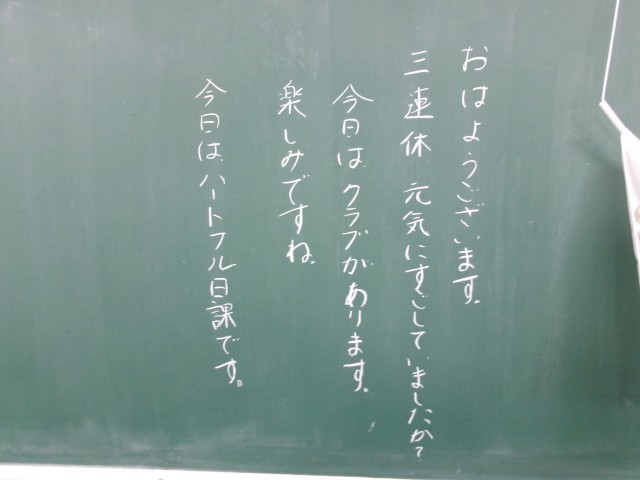 おはようございます。
三連休、元気にすごしていましたか?
今日は、クラブがあります。
楽しみですね。
今日は、ハートフル日課です。